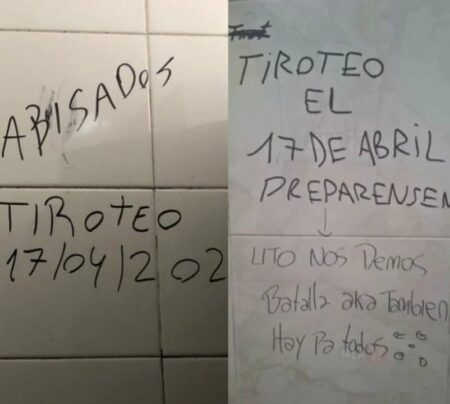 ABISADOS
TIROTEO
17/04/202
TIROTEO
EL
17 DE ABRIL
PREPARENSEN
LITO NOS Demos
Batalla aka Tambien
Hay Pa todos